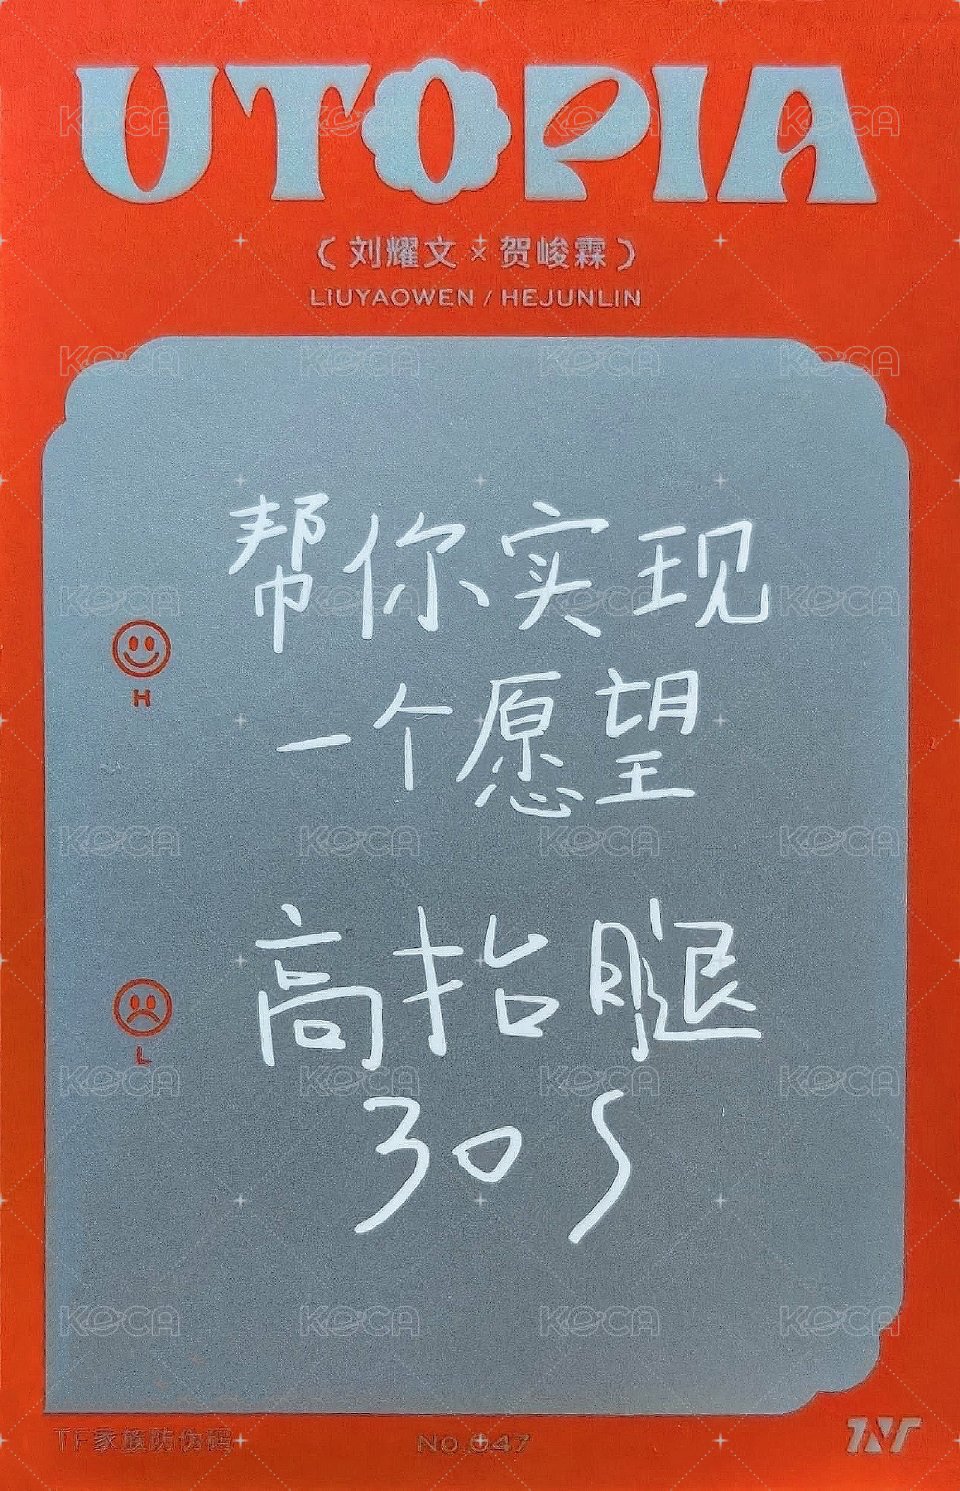 UTOPIA
(刘耀文×贺峻霖)
LIUYAOWEN / HEJUNLIN
帮你实现
H
一个愿望
高抬腿
L
30S
TF家族防伪码
No.047
TNT
KOCA